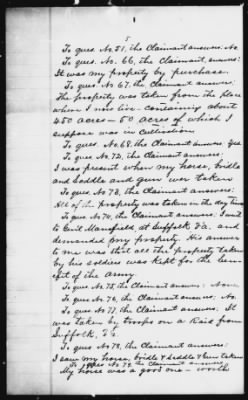 5
To ques. No. 51, the Claimant answers: No
To ques. No. 66, the Claimant answers:
It was my property by purchase.
To ques. No. 67, the Claimant answers:
The property was taken from the place
where I now live - containing about
450 acres - 50 acres of which I
suppose was in cultivation.
To ques. No. 68, the Claimant answers: Yes
To ques. No. 72, the Claimant answers:
I was present when my horse, bridle
and saddle and gun were taken
To ques. No. 73, the Claimant answers:
All of the property was taken in the day time
To ques. No. 74, the Claimant answers: I went
to Genl Mansfield, at Suffolk Va. and
demanded my property. His answer
to me was that all the property taken
by his soldiers was kept for the ben-
efit of the army.
To ques. No. 75, the Claimant answers: None
To ques. No. 76, the Claimant answers: No.
To ques. No. 77, the Claimant answers: It
was taken by troops on a Raid from
Suffolk, Va.
To ques. No. 78, the Claimant answers:
I saw my horse, bridle & saddle & gun taken
To ques. No. 79, the Claimant answers
My horse was a good one - worth